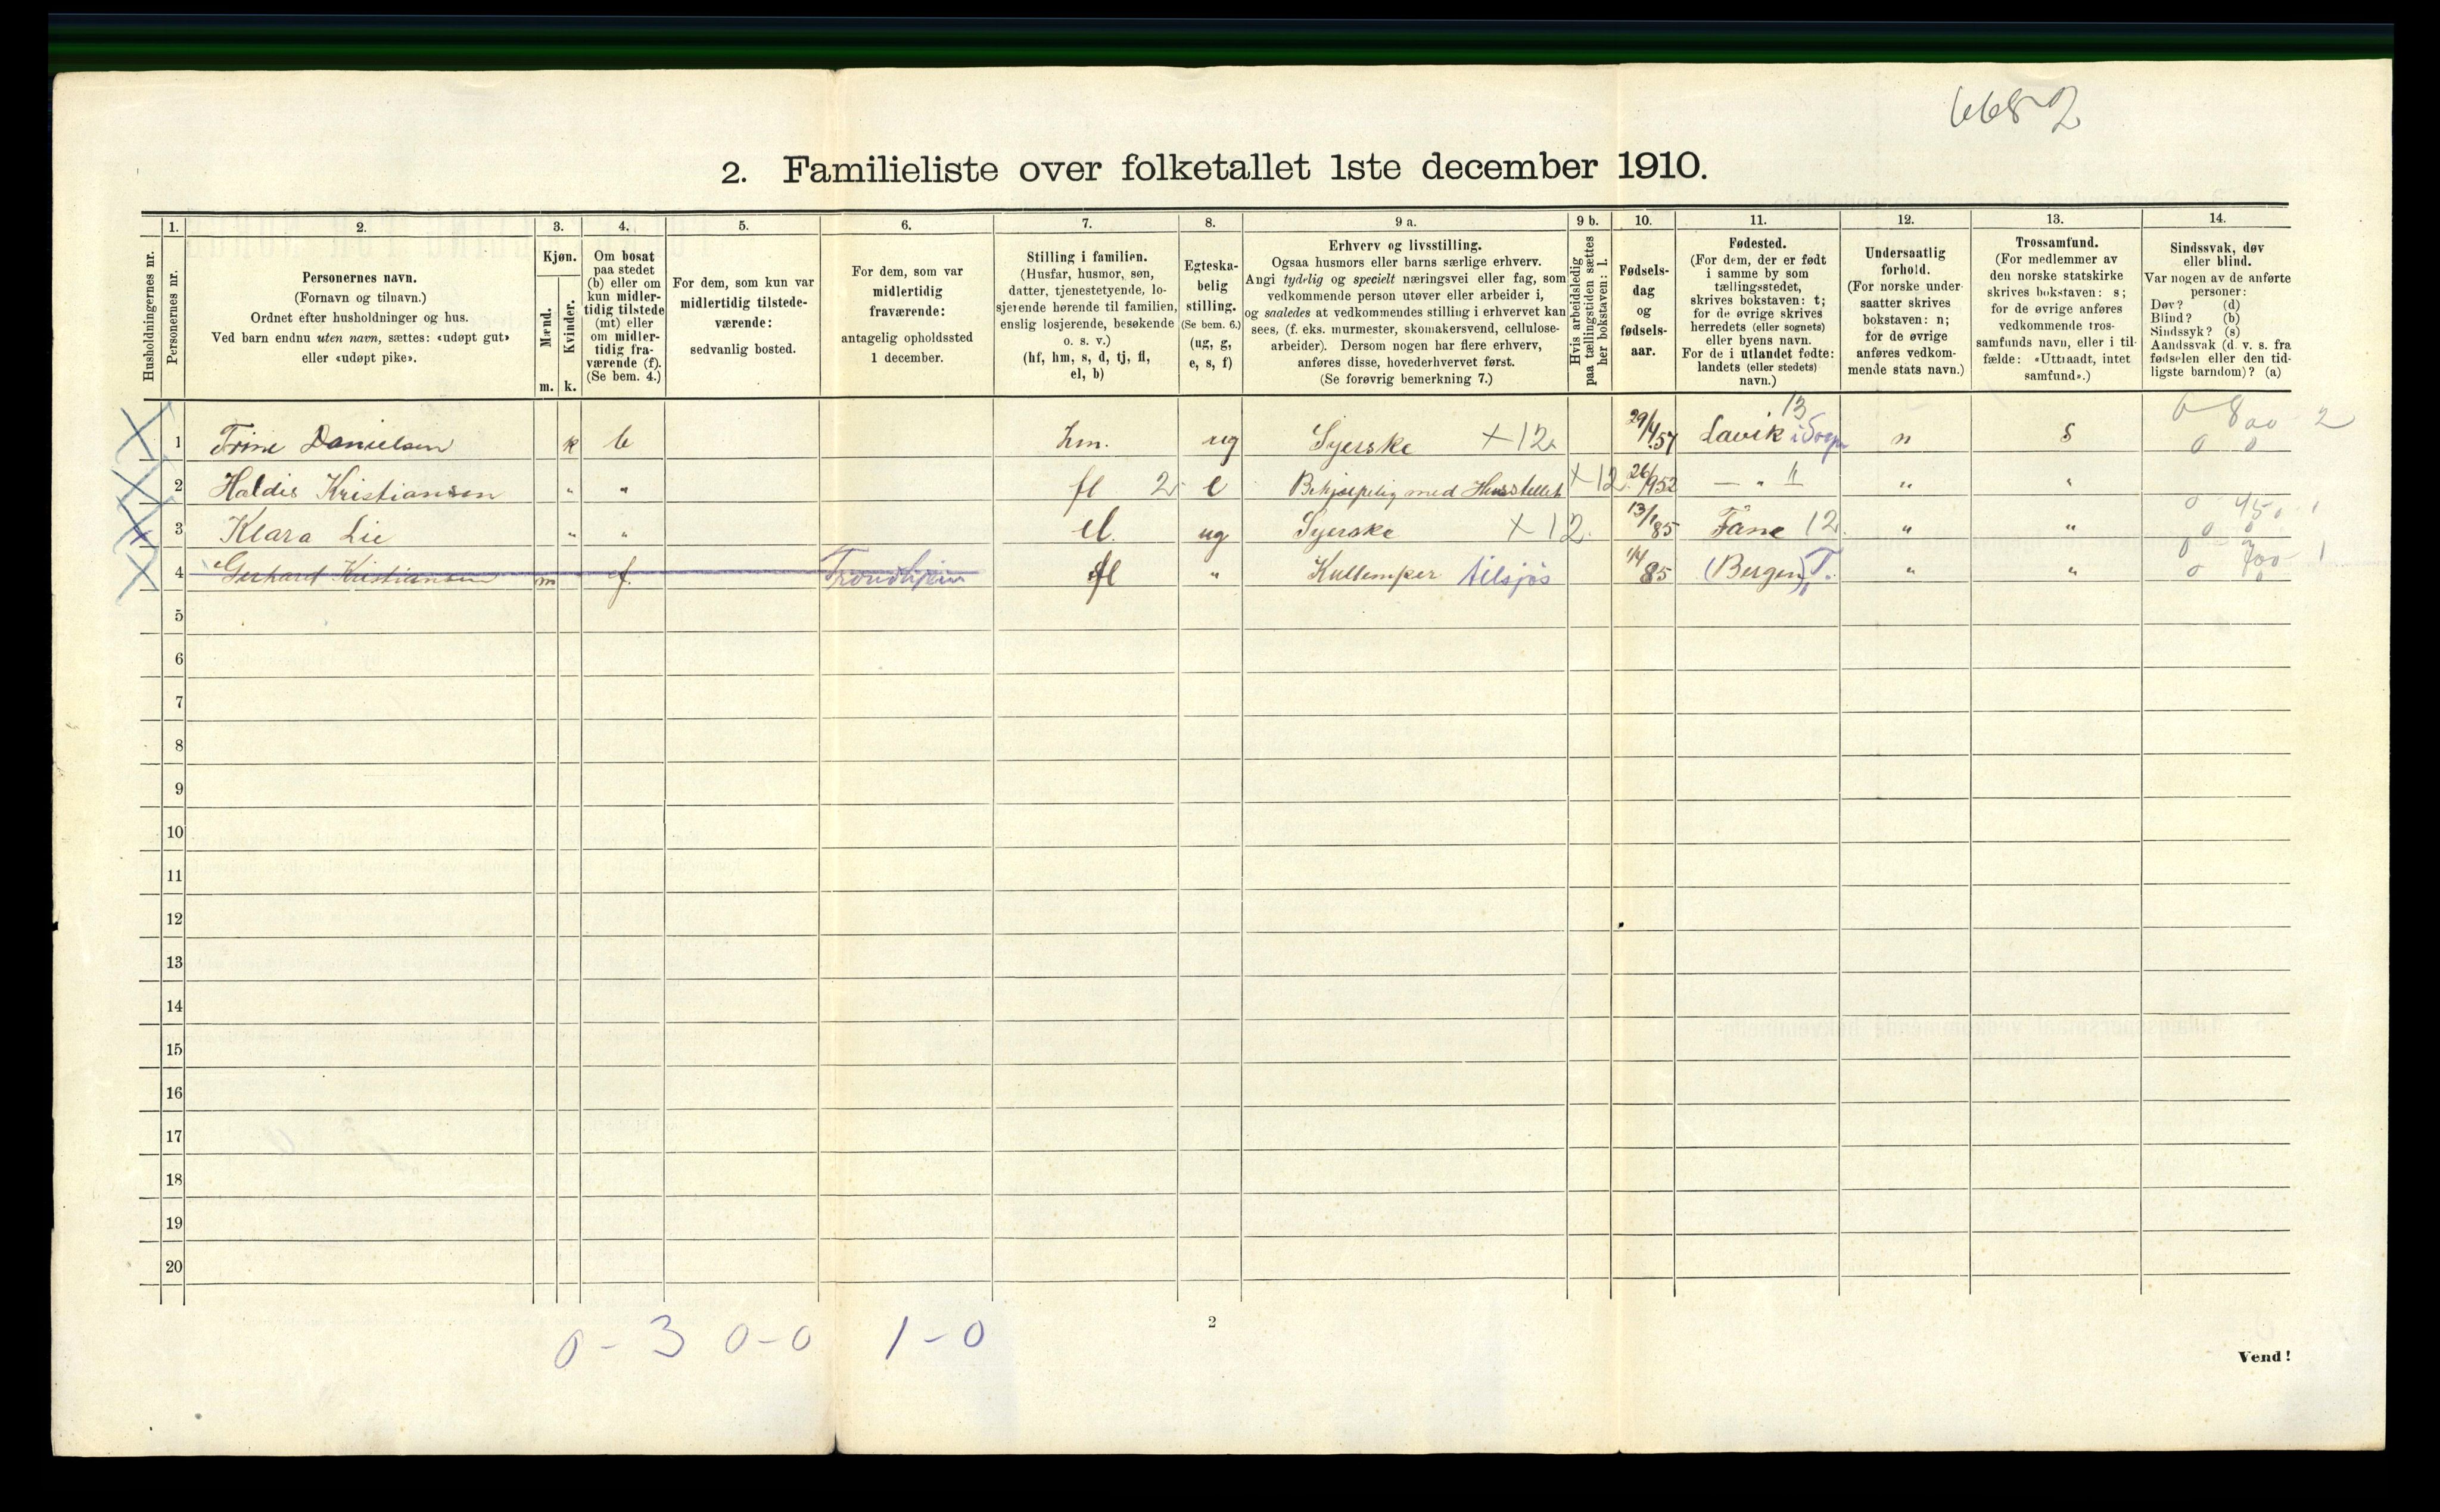 6682
2. Familieliste over folketallet 1ste december 1910.
Husholdningernes nr.
1.
Personernes nr.
2.
Personernes navn.
(Fornavn og tilnavn.)
Ordnet efter husholdninger og hus.
Ved barn endnu uten navn, sættes: «udøpt gut»
eller «udøpt pike».
3.
Kjøn.
Mænd.
Kvinder.
m. k.
4.
Om bosat
paa stedet
(b) eller om
kun midler-
tidig tilstede
(mt) eller
om midler-
tidig fra-
værende (f).
(Se bem. 4.)
5.
For dem, som kun var
midlertidig tilstede-
værende:
sedvanlig bosted.
6.
For dem, som var
midlertidig
fraværende:
antagelig opholdssted
1 december.
7.
Stilling i familien.
(Husfar, husmor, søn,
datter, tjenestetyende, lo-
sjerende hørende til familien,
enslig losjerende, besøkende
o. s. v.)
(hf, hm, s, d, tj, fl,
el, b)
8.
Egteska-
belig
stilling.
(Se bem. 6.)
(ug, g,
e, s, f)
9 a.
Erhverv og livsstilling.
Ogsaa husmors eller barns særlige erhverv.
Angi tydelig og specielt næringsvei eller fag, som
vedkommende person utøver eller arbeider i,
og saaledes at vedkommendes stilling i erhvervet kan
sees, (f. eks. murmester, skomakersvend, cellulose-
arbeider). Dersom nogen har flere erhverv,
anføres disse, hovederhvervet først.
(Se forøvrig bemerkning 7.)
9 b.
Hvis arbeidsledig
paa tællingstiden sættes
her bokstaven: l.
10.
Fødsels-
dag
og
fødsels-
aar.
11.
Fødested.
(For dem, der er født
i samme by som
tællingsstedet,
skrives bokstaven: t;
for de øvrige skrives
herredets (eller sognets)
eller byens navn.
For de i utlandet fødte:
landets (eller stedets)
navn.)
12.
Undersaatlig
forhold.
(For norske under-
saatter skrives
bokstaven: n;
for de øvrige
anføres vedkom-
mende stats navn.)
13.
Trossamfund.
(For medlemmer av
den norske statskirke
skrives bokstaven: s;
for de øvrige anføres
vedkommende tros-
samfunds navn, eller i til-
fælde: «Uttraadt, intet
samfund».)
14.
Sindssvak, døv
eller blind.
Var nogen av de anførte
personer:
Døv? (d)
Blind? (b)
Sindssyk? (s)
Aandssvak (d. v. s. fra
fødselen eller den tid-
ligste barndom)? (a)
13 0 800 2
1 Trine Danielsen k b hm. ug Syerske +12 29/4 57 Lavik i Sogn n s 0 0
2 Haldis Kristiansen " " fl 2 e Behjælpelig med Husstellet +12 26/9 52 — " " " "
0 450 1
3 Klara Lie " " el. ug Syerske +12 13/1 85 Fane 12 " " 0 0
0 700 1
4 Gerhard Kristiansen m f. Trondhjem fl " Kullemper tilsjøs 1/4 85 (Bergen) T. " " 0 0
5
6
7
8
9
10
11
12
13
14
15
16
17
18
19
20
0 - 3 0 - 0 1 - 0
2
Vend!